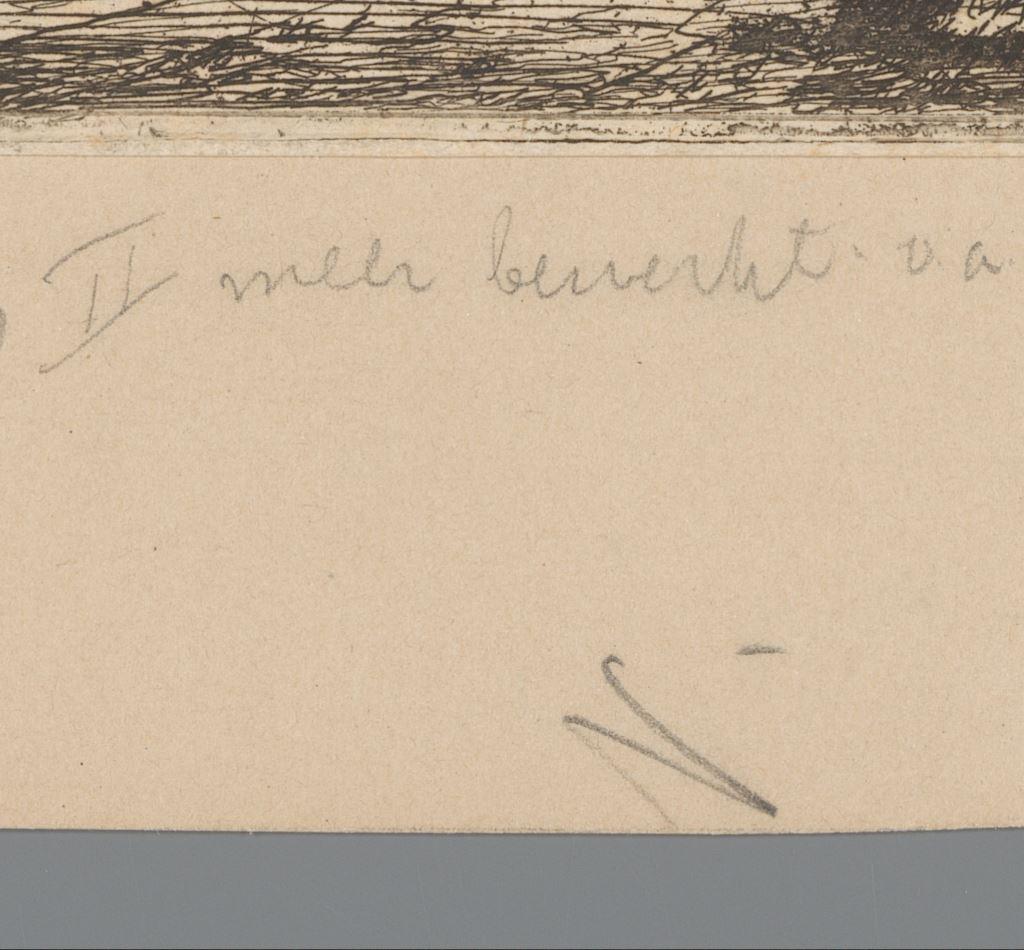 II meer bewerkt. v.a.